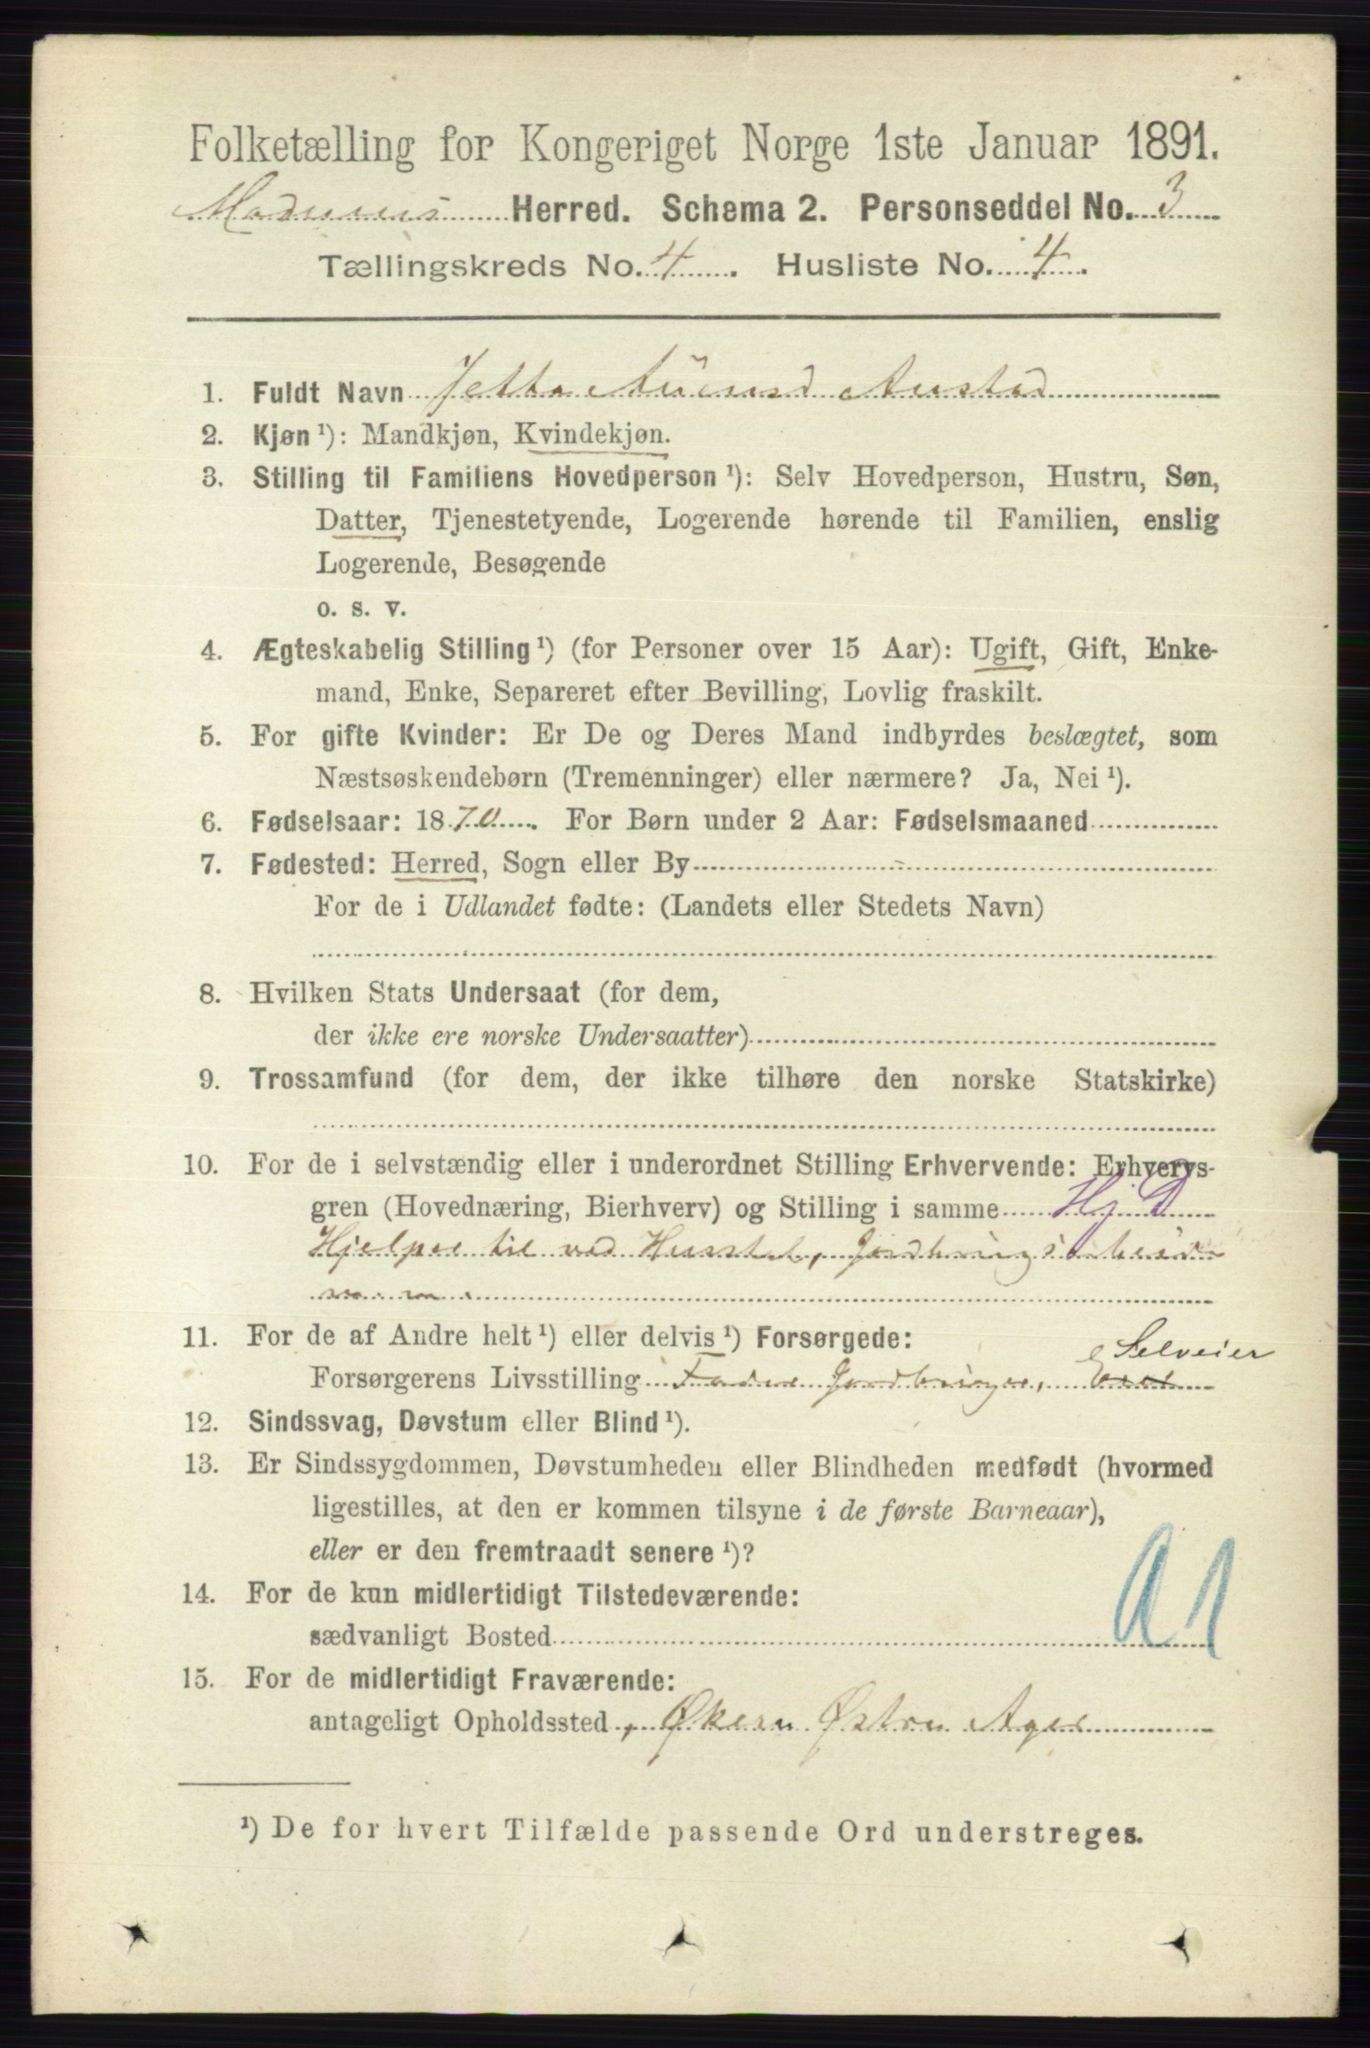 Folketælling for Kongeriget Norge 1ste Januar 1891.
Modums Herred. Schema 2. Personseddel No. 3
Tællingskreds No. 4. Husliste No. 4.
1. Fuldt Navn Jetta Austad
2. Kjøn ¹): Mandkjøn, Kvindekjøn.
3. Stilling til Familiens Hovedperson ¹): Selv Hovedperson, Hustru, Søn,
Datter, Tjenestetyende, Logerende hørende til Familien, enslig
Logerende, Besøgende
o. s. v.
4. Ægteskabelig Stilling ¹) (for Personer over 15 Aar): Ugift, Gift, Enke-
mand, Enke, Separeret efter Bevilling, Lovlig fraskilt.
5. For gifte Kvinder: Er De og Deres Mand indbyrdes beslægtet, som
Næstsøskendebørn (Tremenninger) eller nærmere? Ja, Nei ¹).
6. Fødselsaar: 1870. For Børn under 2 Aar: Fødselsmaaned
7. Fødested: Herred, Sogn eller By
For de i Udlandet fødte: (Landets eller Stedets Navn)
8. Hvilken Stats Undersaat (for dem,
der ikke ere norske Undersaatter)
9. Trossamfund (for dem, der ikke tilhøre den norske Statskirke)
10. For de i selvstændig eller i underordnet Stilling Erhvervende: Erhvervs-
gren (Hovednæring, Bierhverv) og Stilling i samme Hj D
Hjelper til ved Husstel, Jordbrugsarbeide
m. m.
11. For de af Andre helt ¹) eller delvis ¹) Forsørgede:
Selveier
Forsørgerens Livsstilling Fader Jordbruger,
12. Sindssvag, Døvstum eller Blind ¹).
13. Er Sindssygdommen, Døvstumheden eller Blindheden medfødt (hvormed
ligestilles, at den er kommen tilsyne i de første Barneaar),
eller er den fremtraadt senere ¹)?
14. For de kun midlertidigt Tilstedeværende:
sædvanligt Bosted
a1
15. For de midlertidigt Fraværende:
antageligt Opholdssted, Økern Østre Ager
¹) De for hvert Tilfælde passende Ord understreges.